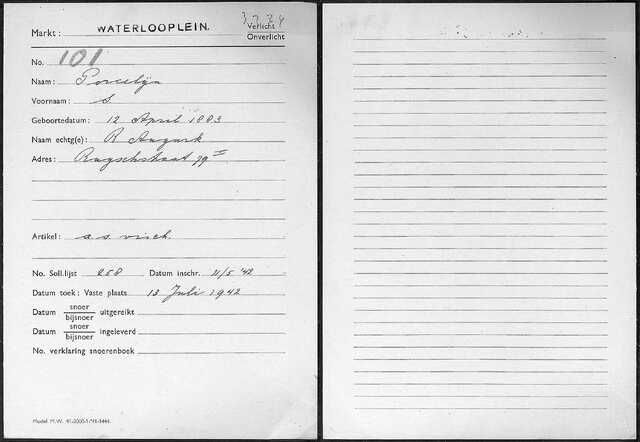 Markt: WATERLOOPLEIN. Verlicht
Onverlicht
No. 101
Naam: Porcelijn
Voornaam: S.
Geboortedatum: 12 April 1883
Naam echtg(e): R Augurk
Adres: Ruyschstraat 99 II
Artikel: a.s. visch.
No. Soll.lijst 258 Datum inschr. 11/5 '42
Datum toek: Vaste plaats 13 Juli 1942
Datum snoer/bijsnoer uitgereikt
Datum snoer/bijsnoer ingeleverd
No. verklaring snoerenboek
Model M.W.